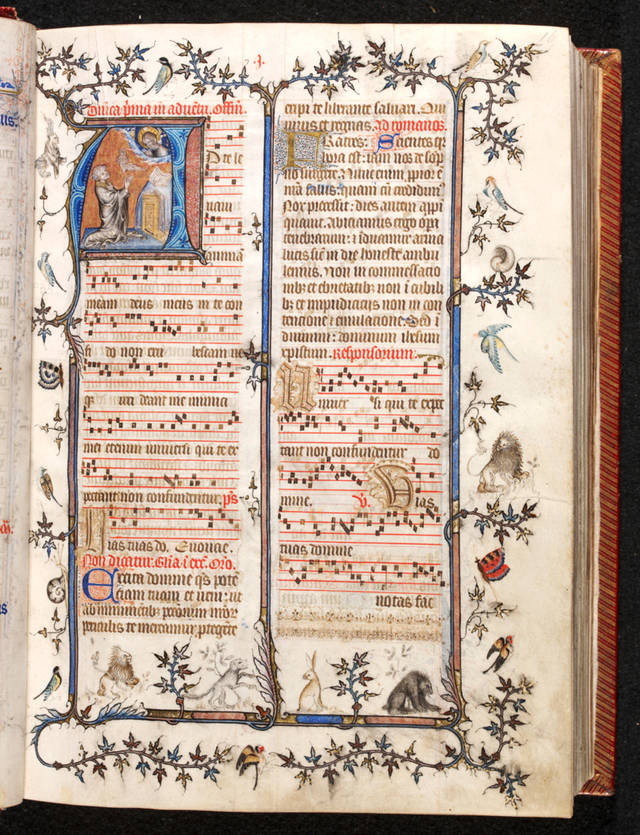 Dnica prima in adventu. Offm.
A
D te le
vaui
animã
meam deus meus in te con
fi do non eru bescam ne
qz irri deant me inimici
mei etenim universi qui te ex
pectant non confundentur. ps
Vias tuas do. Evovae.
Non dicatur. Gl'ia i exc. Oro.
Excita domine qs poten
ciam tuam et veni: ut
ab imminentibz peccatorum
periculis te mereamur protegente
eripi te liberante salvari. Qui
vivis et regnas. Ad romanos.
Fratres: Scientes qr
hora est: iam nos de sop
no surgere. Nunc enim prior ẽ
nrã salus: quam cũ credidimus
Nox precessit: dies autem appri
quavit. Abiciamus ergo opa
tenebrarum: et induamur arma
lucis sic ut in die honeste ambu
lemus. Non in commessacio
nibz et ebrietatibz non in cubilibz
et impudiciciis non in con
tencione et emulacione. Sed i
duimini dominum ihesum
christum. Responsorium.
Universi qui te expe
ctant non confundentur do
mine. V. Vias
tuas domine
notas fac